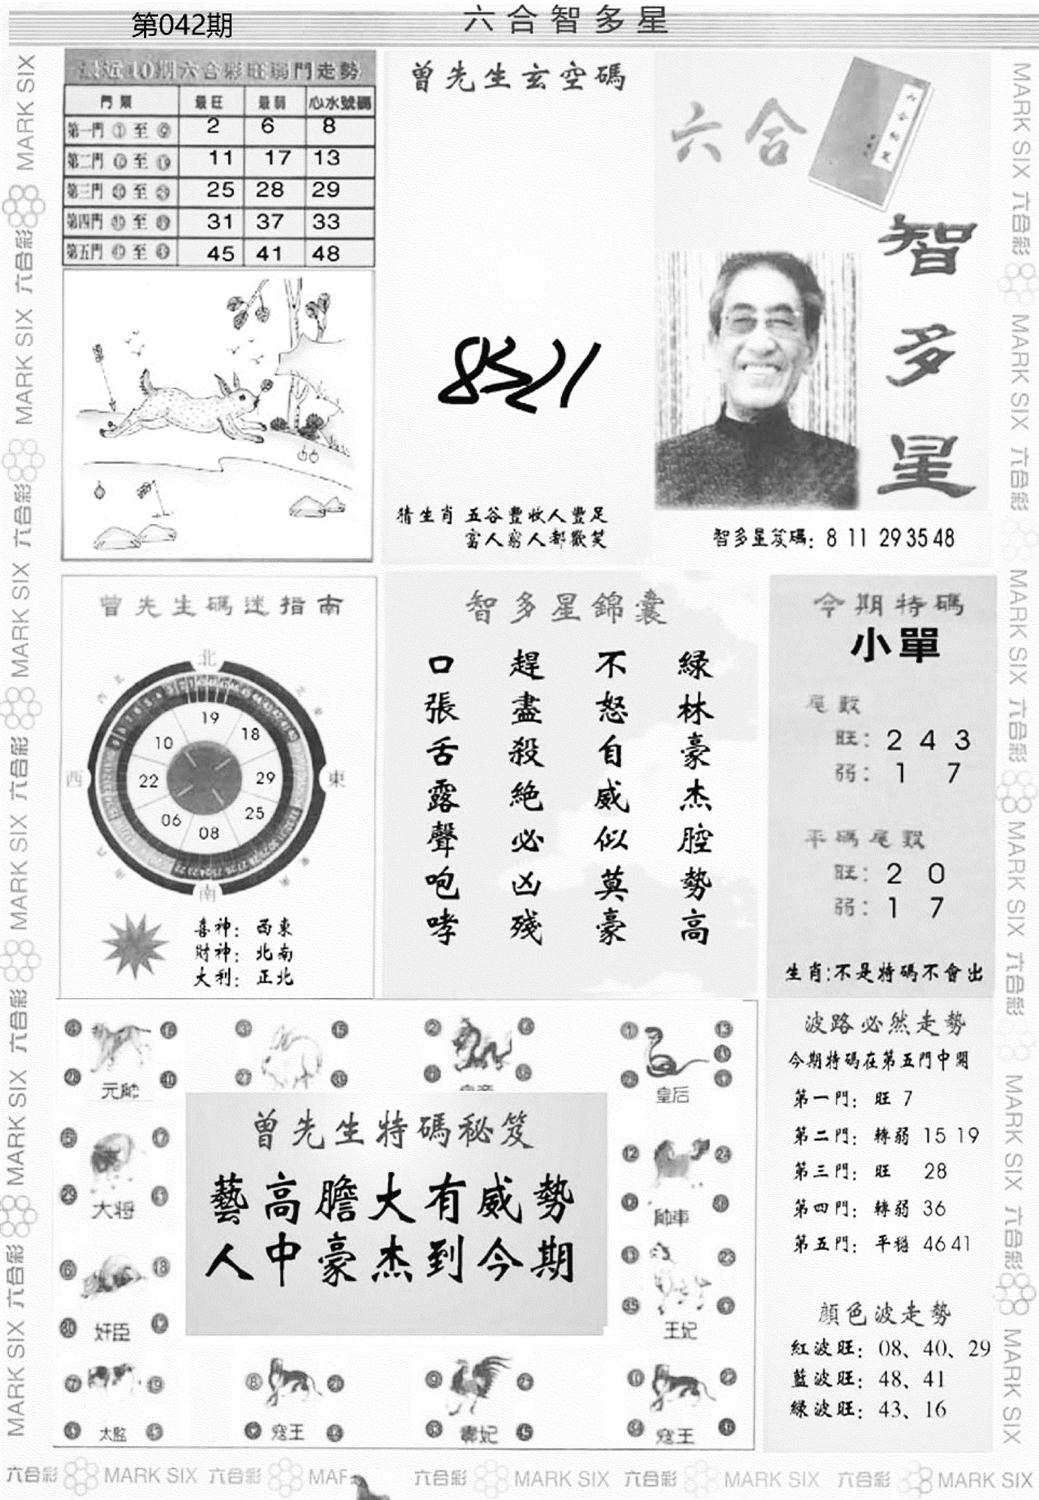 第042期
六合智多星
最近10期六合彩旺弱門走勢
門類 最旺 最弱 心水號碼
第一門 ① 至 ⑨ 2 6 8
第二門 ⑩ 至 ⑲ 11 17 13
第三門 至 25 28 29
第四門 至 31 37 33
第五門 至 45 41 48
曾先生玄空碼
猜生肖 五谷豐收人豐足
富人窮人都歡笑
六合
智多星
智多星笈碼：8 11 29 35 48
曾先生碼迷指南
北
東
南
西
19
18
29
25
08
06
22
10
喜神：西東
財神：北南
大利：正北
智多星錦囊
綠林豪杰腔勢高
不怒自威似莫豪
趕盡殺絕必凶殘
口張舌露聲咆哮
今期特碼
小單
尾數
旺：2 4 3
弱：1 7
平碼尾數
旺：2 0
弱：1 7
生肖:不是特碼不會出
元帥
皇后
大将
帥車
奸臣
王妃
太監
寇王
寇王
曾先生特碼秘笈
藝高膽大有威勢
人中豪杰到今期
波路必然走勢
今期特碼在第五門中開
第一門：旺 7
第二門：轉弱 15 19
第三門：旺 28
第四門：轉弱 36
第五門：平穩 46 41
顏色波走勢
紅波旺：08、40、29
藍波旺：48、41
綠波旺：43、16
六合彩 MARK SIX 六合彩 MAR 六合彩 MARK SIX 六合彩 MARK SIX 六合彩 MARK SIX